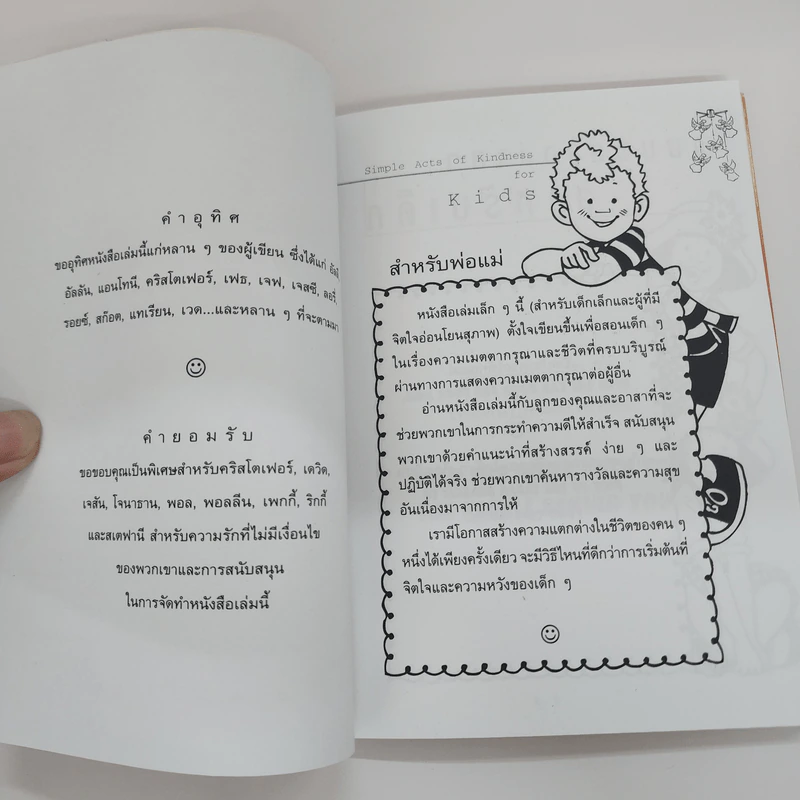 คำอุทิศ
ขออุทิศหนังสือเล่มนี้แก่หลาน ๆ ของผู้เขียน ซึ่งได้แก่
อัลลัน, แอนโทนี, คริสโตเฟอร์, เฟธ, เจฟ, เจสซี, ลอรี่,
รอยซ์, สก๊อต, แทเรียน, เวด...และหลาน ๆ ที่จะตามมา
คำยอมรับ
ขอขอบคุณเป็นพิเศษสำหรับคริสโตเฟอร์, เดวิด,
เจสัน, โจนาธาน, พอล, พอลลีน, เพกกี้, ริกกี้
และสเตฟานี สำหรับความรักที่ไม่มีเงื่อนไข
ของพวกเขาและการสนับสนุน
ในการจัดทำหนังสือเล่มนี้
Simple Acts of Kindness
for
Kids
สำหรับพ่อแม่
หนังสือเล่มเล็ก ๆ นี้ (สำหรับเด็กเล็กและผู้ที่มี
จิตใจอ่อนโยนสุภาพ) ตั้งใจเขียนขึ้นเพื่อสอนเด็ก ๆ
ในเรื่องความเมตตากรุณาและชีวิตที่ครบบริบูรณ์
ผ่านทางการแสดงความเมตตากรุณาต่อผู้อื่น
อ่านหนังสือเล่มนี้กับลูกของคุณและอาสาที่จะ
ช่วยพวกเขาในการกระทำความดีให้สำเร็จ สนับสนุน
พวกเขาด้วยคำแนะนำที่สร้างสรรค์ ง่าย ๆ และ
ปฏิบัติได้จริง ช่วยพวกเขาค้นหารางวัลและความสุข
อันเนื่องมาจากการให้
เรามีโอกาสสร้างความแตกต่างในชีวิตของคน ๆ
หนึ่งได้เพียงครั้งเดียว จะมีวิธีไหนที่ดีกว่าการเริ่มต้นที่
จิตใจและความหวังของเด็ก ๆ